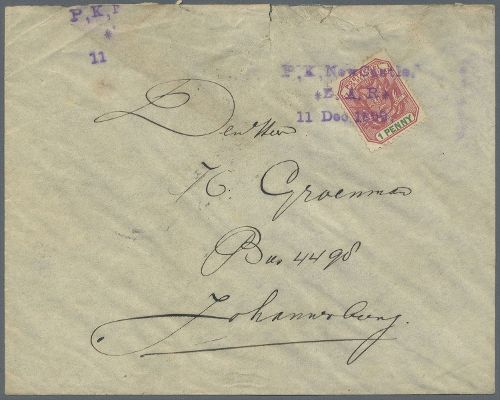 P.K.
*
11
P.K. New Castle.
*Z.A.R*
11 Dec. 1899.
1 PENNY
Den Heer
H. Groenman
Box 4498
Johannesburg.